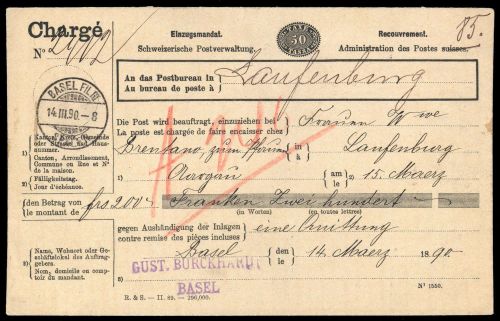 Chargé
No 2902
Einzugsmandat.
Schweizerische Postverwaltung.
TAXE 50
Recouvrement.
Administration des Postes suisses.
85.
An das Postbureau in
Au bureau de poste à
Laufenburg
BASEL FIL.
14.III.90.-8
Die Post wird beauftragt, einzuziehen bei
La poste est chargée de faire encaisser chez
Frauen Wwe
1) Kanton, Bezirk, Gemeinde oder Strasse und Hausnummer.
Canton, Arrondissement, Commune ou rue et No de la maison.
Brentano zum Pfauen in
à Laufenburg
2) Fälligkeitstag.
Jour d'échéance.
Aargau am
le 2) 15. Maerz
den Betrag von
le montant de
frs 200.- Franken Zwei hundert
(in Worten) (en toutes lettres)
gegen Aushändigung der Inlagen
contre remise des pièces incluses
eine Quittung
3) Name, Wohnort oder Geschäftslokal des Auftraggebers.
Nom, domicile en comptoir du mandant.
Basel den
le 14. Maerz 1890.
3)
GUST. BURCKHARDT
BASEL
R. & S. — II. 89. — 290,000.
No 1550.